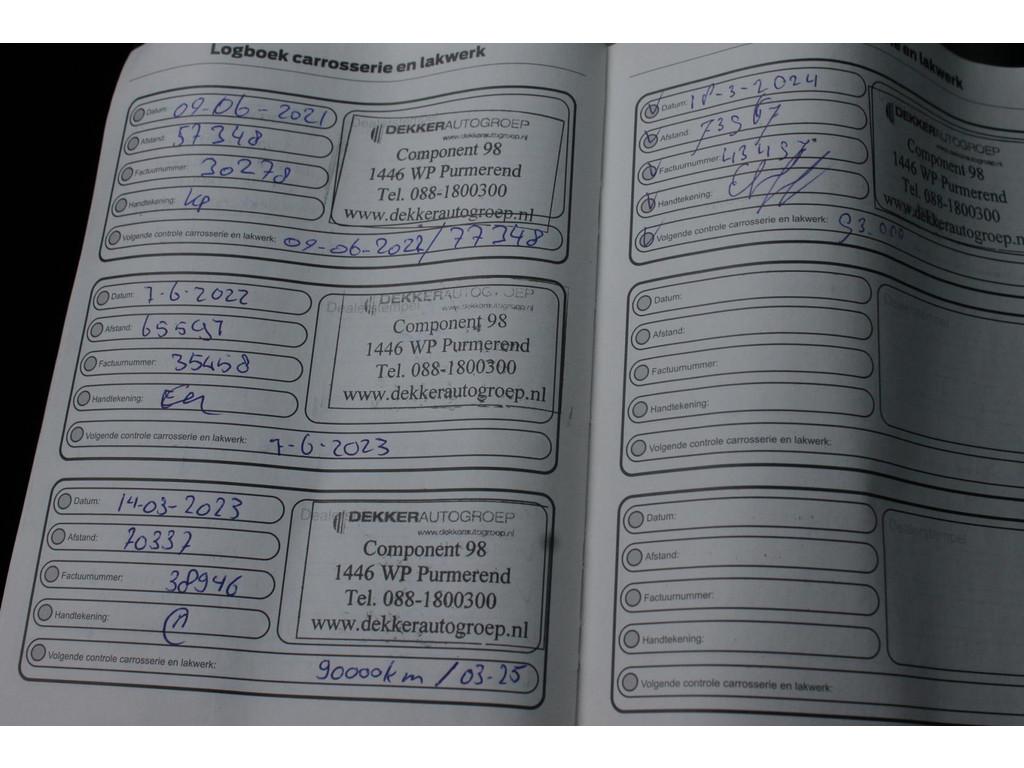 Logboek carrosserie en lakwerk
Datum: 09-06-2021
Afstand: 57348
Factuurnummer: 30278
Handtekening:
Volgende controle carrosserie en lakwerk: 09-06-2022/77348
Dealerstempel
DEKKERAUTOGROEP
www.dekkerautogroep.nl
Component 98
1446 WP Purmerend
Tel. 088-1800300
www.dekkerautogroep.nl
Datum: 7-6-2022
Afstand: 65597
Factuurnummer: 35458
Handtekening:
Volgende controle carrosserie en lakwerk: 7-6-2023
Dealerstempel
DEKKERAUTOGROEP
www.dekkerautogroep.nl
Component 98
1446 WP Purmerend
Tel. 088-1800300
www.dekkerautogroep.nl
Datum: 14-03-2023
Afstand: 70337
Factuurnummer: 38946
Handtekening:
Volgende controle carrosserie en lakwerk: 90000km / 03-25
Dealerstempel
DEKKERAUTOGROEP
www.dekkerautogroep.nl
Component 98
1446 WP Purmerend
Tel. 088-1800300
www.dekkerautogroep.nl
en lakwerk
Datum: 18-3-2024
Afstand: 73967
Factuurnummer: 43497
Handtekening:
Volgende controle carrosserie en lakwerk: 93.000
DEKKERAUTOGROEP
www.dekkerautogroep.nl
Component 98
1446 WP Purmerend
Tel. 088-1800300
www.dekkerautogroep.n
Datum:
Afstand:
Factuurnummer:
Handtekening:
Volgende controle carrosserie en lakwerk:
Dealerstempel
Datum:
Afstand:
Factuurnummer:
Handtekening:
Volgende controle carrosserie en lakwerk:
Dealerstempel